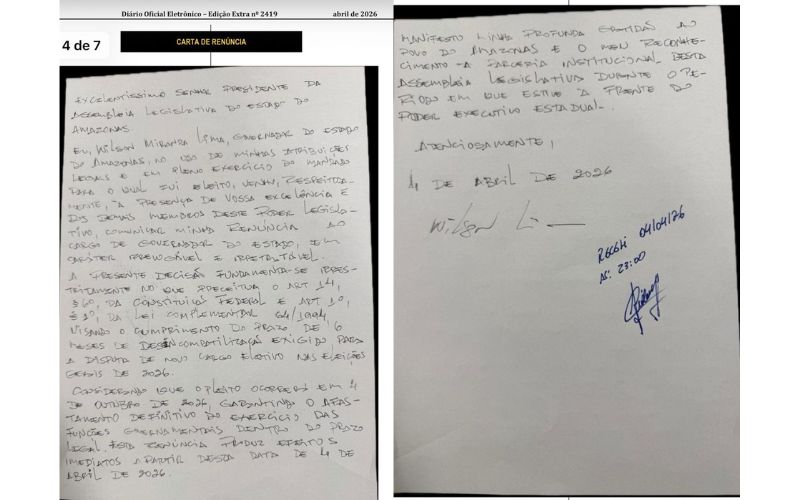 Diário Oficial Eletrônico – Edição Extra nº 2419 abril de 2026
4 de 7
CARTA DE RENÚNCIA
EXCELENTÍSSIMO SENHOR PRESIDENTE DA
ASSEMBLEIA LEGISLATIVA DO ESTADO DO
AMAZONAS.
EU, WILSON MIRANDA LIMA, GOVERNADOR DO ESTADO
DO AMAZONAS, NO USO DE MINHAS ATRIBUIÇÕES
LEGAIS E EM PLENO EXERCÍCIO DO MANDATO
PARA O QUAL FUI ELEITO, VENHO, RESPEITOSA-
MENTE, À PRESENÇA DE VOSSA EXCELÊNCIA E
DOS DEMAIS MEMBROS DESTE PODER LEGISLA-
TIVO, COMUNICAR MINHA RENÚNCIA AO
CARGO DE GOVERNADOR DO ESTADO, EM
CARÁTER IRREVOGÁVEL E IRRETRATÁVEL.
A PRESENTE DECISÃO FUNDAMENTA-SE IRRES-
TRITAMENTE NO QUE PRECEITUA O ART 14,
§ 6º, DA CONSTITUIÇÃO FEDERAL E ART 1º,
§ 1º, DA LEI COMPLEMENTAR 64/1994
VISANDO O CUMPRIMENTO DO PRAZO DE 6
MESES DE DESINCOMPATIBILIZAÇÃO EXIGIDO PARA
A DISPUTA DE NOVO CARGO ELETIVO NAS ELEIÇÕES
GERAIS DE 2026.
CONSIDERANDO QUE O PLEITO OCORRERÁ EM 4
DE OUTUBRO DE 2026, GARANTINDO O AFAS-
TAMENTO DEFINITIVO DO EXERCÍCIO DAS
FUNÇÕES GOVERNAMENTAIS DENTRO DO PRAZO
LEGAL. ESTA RENÚNCIA PRODUZ EFEITOS
IMEDIATOS A PARTIR DESTA DATA DE 4 DE
ABRIL DE 2026.
MANIFESTO MINHA PROFUNDA GRATIDÃO AO
POVO DO AMAZONAS E O MEU RECONHE-
CIMENTO À PARCERIA INSTITUCIONAL DESTA
ASSEMBLEIA LEGISLATIVA DURANTE O PE-
RÍODO EM QUE ESTIVE À FRENTE DO
PODER EXECUTIVO ESTADUAL.
ATENCIOSAMENTE,
4 DE ABRIL DE 2026
Wilson Li
RECEBI 04/04/26
ÀS: 23:00